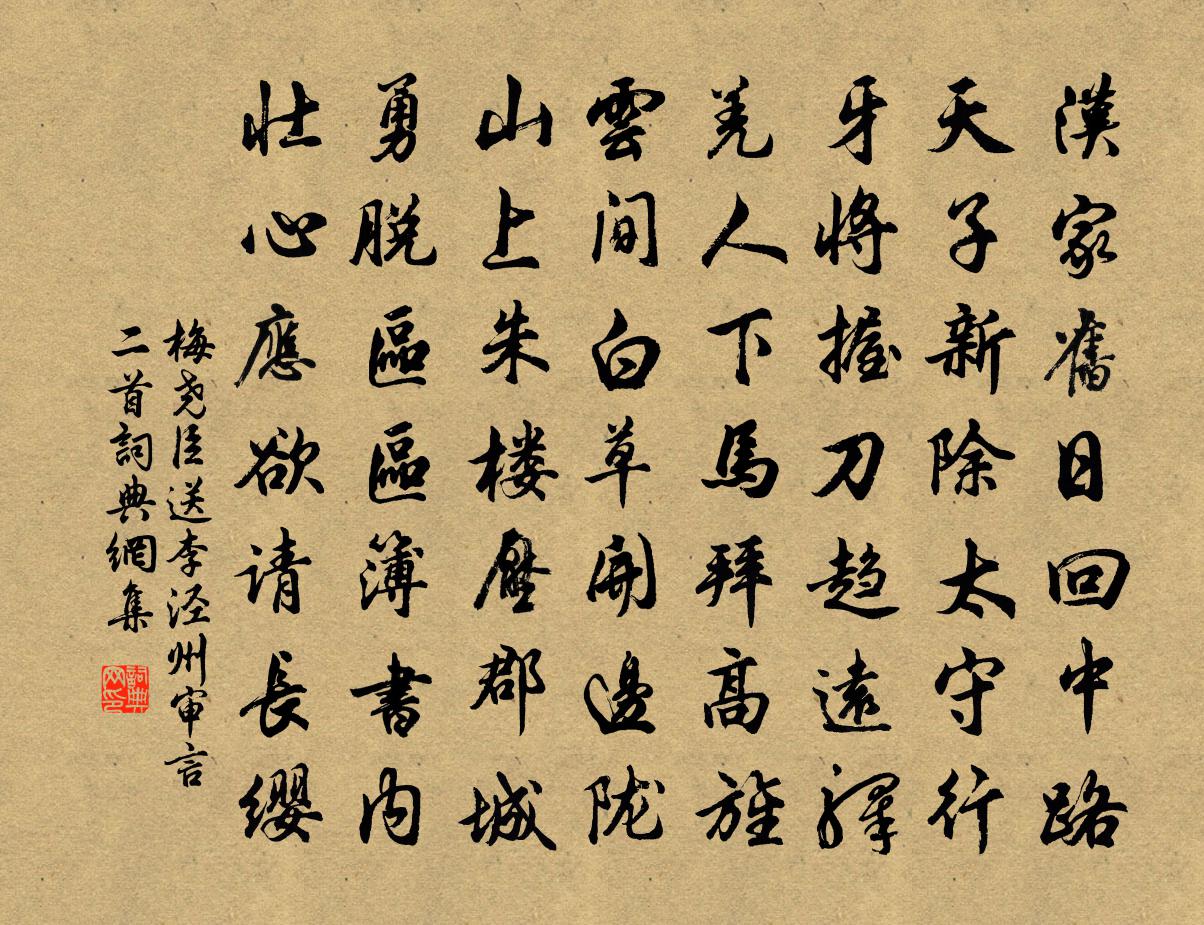 漢家舊日回中路
天子新除太守行
牙將握刀趋遠驛
羌人下馬拜高旌
雲間白草開邊陇
山上朱楼壓郡城
勇脱區區簿書内
壮心應欲请長缨
梅尧臣送李泾州审言
二首詞典網集
詞典
网印